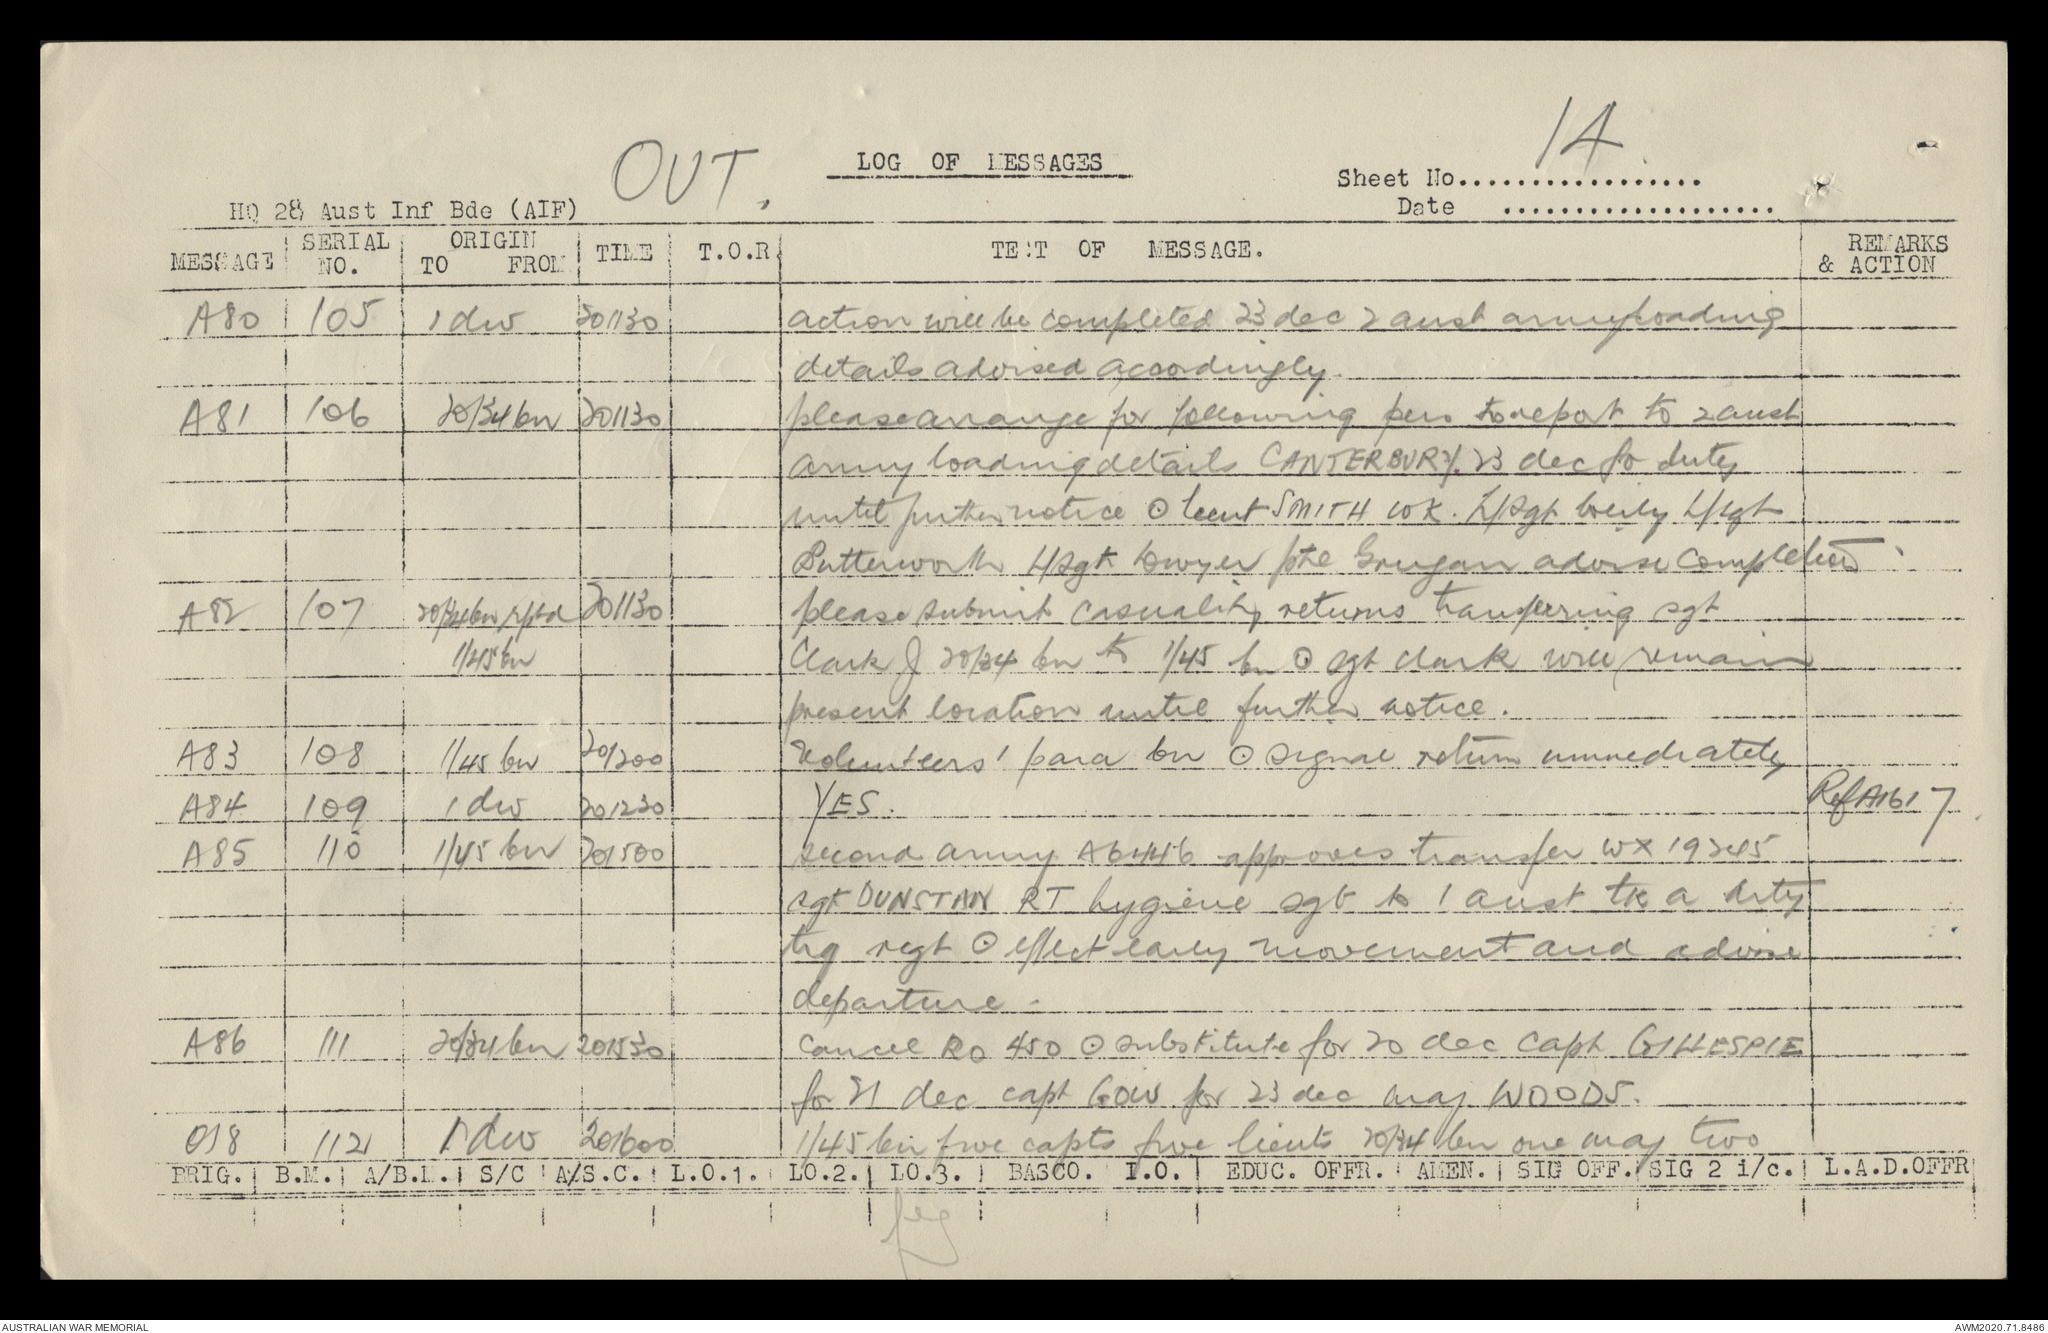 14
OUT.
LOG OF MESSAGES
Sheet No..................
Date ....................
HQ 28 Aust Inf Bde (AIF)
MESSAGE SERIAL NO. ORIGIN TO FROM TIME T.O.R. TEXT OF MESSAGE. REMARKS & ACTION
A80 105 1 div 201130 action will be completed 23 dec 2 aust army loading
details advised accordingly.
A81 106 20/34 bn 201130 please arrange for following pers to report to 2 aust
army loading details CANTERBURY. 23 dec for duty
until further notice ⊙ lieut SMITH WK. L/sgt L/sgt
Butterworth L/sgt Dwyer pte Grugan advise completion.
A82 107 20/34 bn rptd 201130 please submit casuality returns transferring sgt
1/45 bn Clark J 20/34 bn to 1/45 bn ⊙ sgt clark will remain
present location until further notice.
A83 108 1/45 bn 201200 Volunteers' para bn ⊙ signal return immediately
A84 109 1 div 201230 YES. Ref A1617
A85 110 1/45 bn 201500 second army A6446 approves transfer WX 19245
sgt DUNSTAN RT hygiene sgt to 1 aust tk a arty
trg regt ⊙ effect early movement and advise
departure -
A86 111 20/34 bn 201530 cancel RO 450 ⊙ substitute for 20 dec capt GILLESPIE
for 21 dec capt GOW for 23 dec maj WOODS.
O18 112 1 div 201600 1/45 bn five capts five lieuts 20/34 bn one maj two
BRIG. B.M. A/B.M. S/C A/S.C. L.O.1. LO.2. LO.3. BASCO. I.O. EDUC. OFFR. AMEN. SIG OFF. SIG 2 i/c. L.A.D.OFFR
AUSTRALIAN WAR MEMORIAL
AWM2020.71.8486